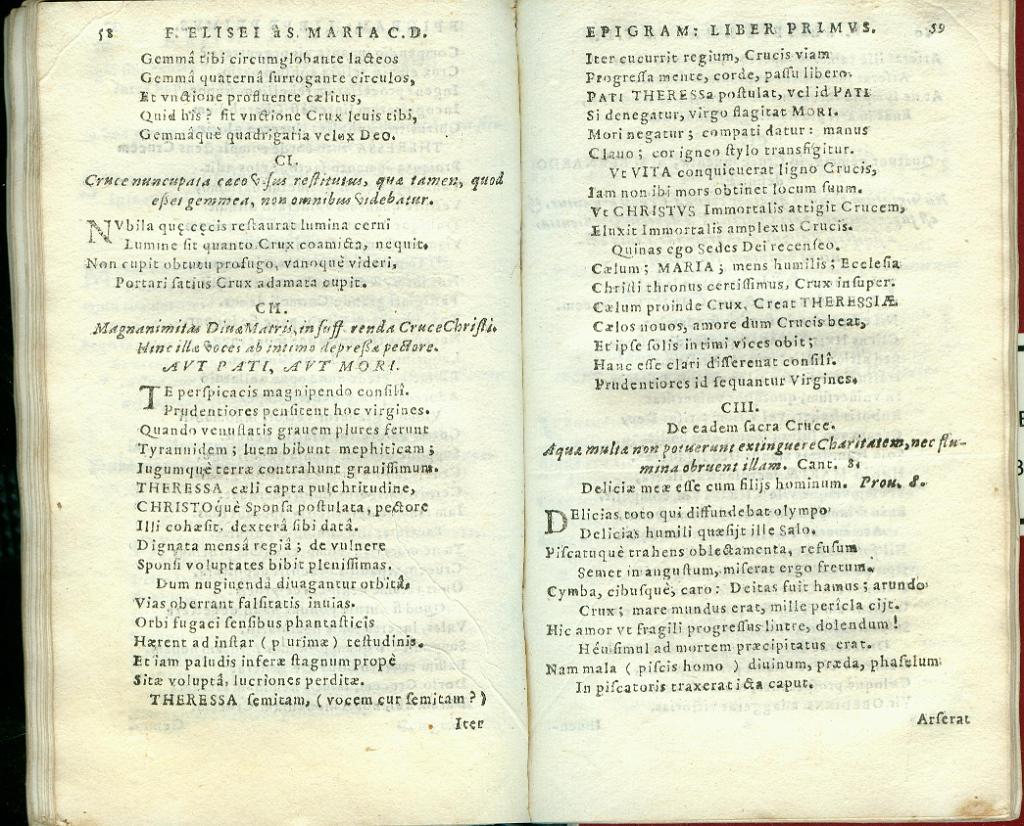 58 F. ELISEI à S. MARIA C. D.
Gemmâ tibi circumglobante lacteos
Gemmâ quaternâ surrogante circulos,
Et vnctione profluente cælitus,
Quid his? fit vnctione Crux leuis tibi,
Gemmâquè quadrigaria velox Deo.
CI.
Cruce nuncupata cæco visus restitutus, quæ tamen, quod
esset gemmea, non omnibus videbatur.
NVbila quę cęcis restaurat lumina cerni
Lumine sit quanto Crux coamicta, nequit.
Non cupit obtutu profugo, vanoquè videri,
Portari satius Crux adamata cupit.
CII.
Magnanimitas Diuæ Matris, in suff renda Cruce Christi.
Hinc illæ voces ab intimo depressæ pectore.
AVT PATI, AVT MORI.
TE perspicacis magnipendo consilî.
Prudentiores pensitent hoc virgines.
Quando venustatis grauem plures ferunt
Tyrannidem; luem bibunt mephiticam;
Iugumquè terræ contrahunt grauissimum.
THERESSA cæli capta pulchritudine,
CHRISTOquè Sponsa postulata, pectore
Illi cohæsit, dexterâ sibi datâ.
Dignata mensâ regiâ; de vulnere
Sponsi voluptates bibit plenissimas.
Dum nugiuendâ diuagantur orbitâ,
Vias oberrant falsitatis inuias.
Orbi fugaci sensibus phantasticis
Hærent ad instar (plurimæ) testudinis.
Et iam paludis inferæ stagnum propè
Sitæ voluptâ, lucriones perditæ.
THERESSA semitam, (vocem cur semitam?)
Iter
EPIGRAM: LIBER PRIMVS. 59
Iter cucurrit regium, Crucis viam
Progressa mente, corde, passu libero.
PATI THERESSA postulat, vel id PATI
Si denegatur, virgo flagitat MORI.
Mori negatur; compati datur: manus
Clauo; cor igneo stylo transfigitur.
Vt VITA conquieuerat ligno Crucis,
Iam non ibi mors obtinet locum suum.
Vt CHRISTVS Immortalis attigit Crucem,
Eluxit Immortalis amplexus Crucis.
Quinas ego Sedes Dei recenseo.
Cælum; MARIA; mens humilis; Ecclesia
Christi thronus certissimus, Crux insuper.
Cælum proinde Crux, Creat THERESSIÆ
Cælos nouos, amore dum Crucis beat,
Et ipse solis intimi vices obit;
Hanc esse clari differenat consilî.
Prudentiores id sequantur Virgines.
CIII.
De eadem sacra Cruce.
Aquæ multæ non potuerunt extinguere Charitatem, nec flu-
mina obruent illam. Cant. 8.
Deliciæ meæ esse cum filijs hominum. Prou. 8.
DElicias toto qui diffundebat olympo
Delicias humili quæsijt ille Salo.
Piscatuquè trahens oblectamenta, refusum
Semet in angustum, miserat ergo fretum.
Cymba, cibusquè, caro: Deitas fuit hamus; arundo
Crux; mare mundus erat, mille pericla cijt.
Hic amor vt fragili progressus lintre, dolendum!
Héu simul ad mortem præcipitatus erat.
Nam mala (piscis homo) diuinum, præda, phaselum
In piscatoris traxerat icta caput.
Arserat